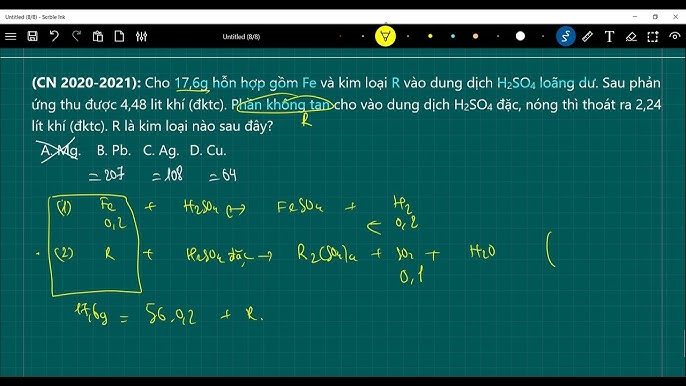 Untitled (8/8) - Scrble Ink
Untitled (8/8)
(CN 2020-2021): Cho 17,6g hỗn hợp gồm Fe và kim loại R vào dung dịch H₂SO₄ loãng dư. Sau phản
ứng thu được 4,48 lit khí (đktc). Phần không tan cho vào dung dịch H₂SO₄ đặc, nóng thì thoát ra 2,24
lít khí (đktc). R là kim loại nào sau đây?
R
A. Mg. B. Pb. C. Ag. D. Cu.
= 207 = 108 = 64
(1) Fe + H₂SO₄ → FeSO₄ + H₂
0,2 ← 0,2
(2) R + H₂SO₄ đặc → R₂(SO₄)ₙ + SO₂ + H₂O (
0,1
17,6g = 56.0,2 + R.